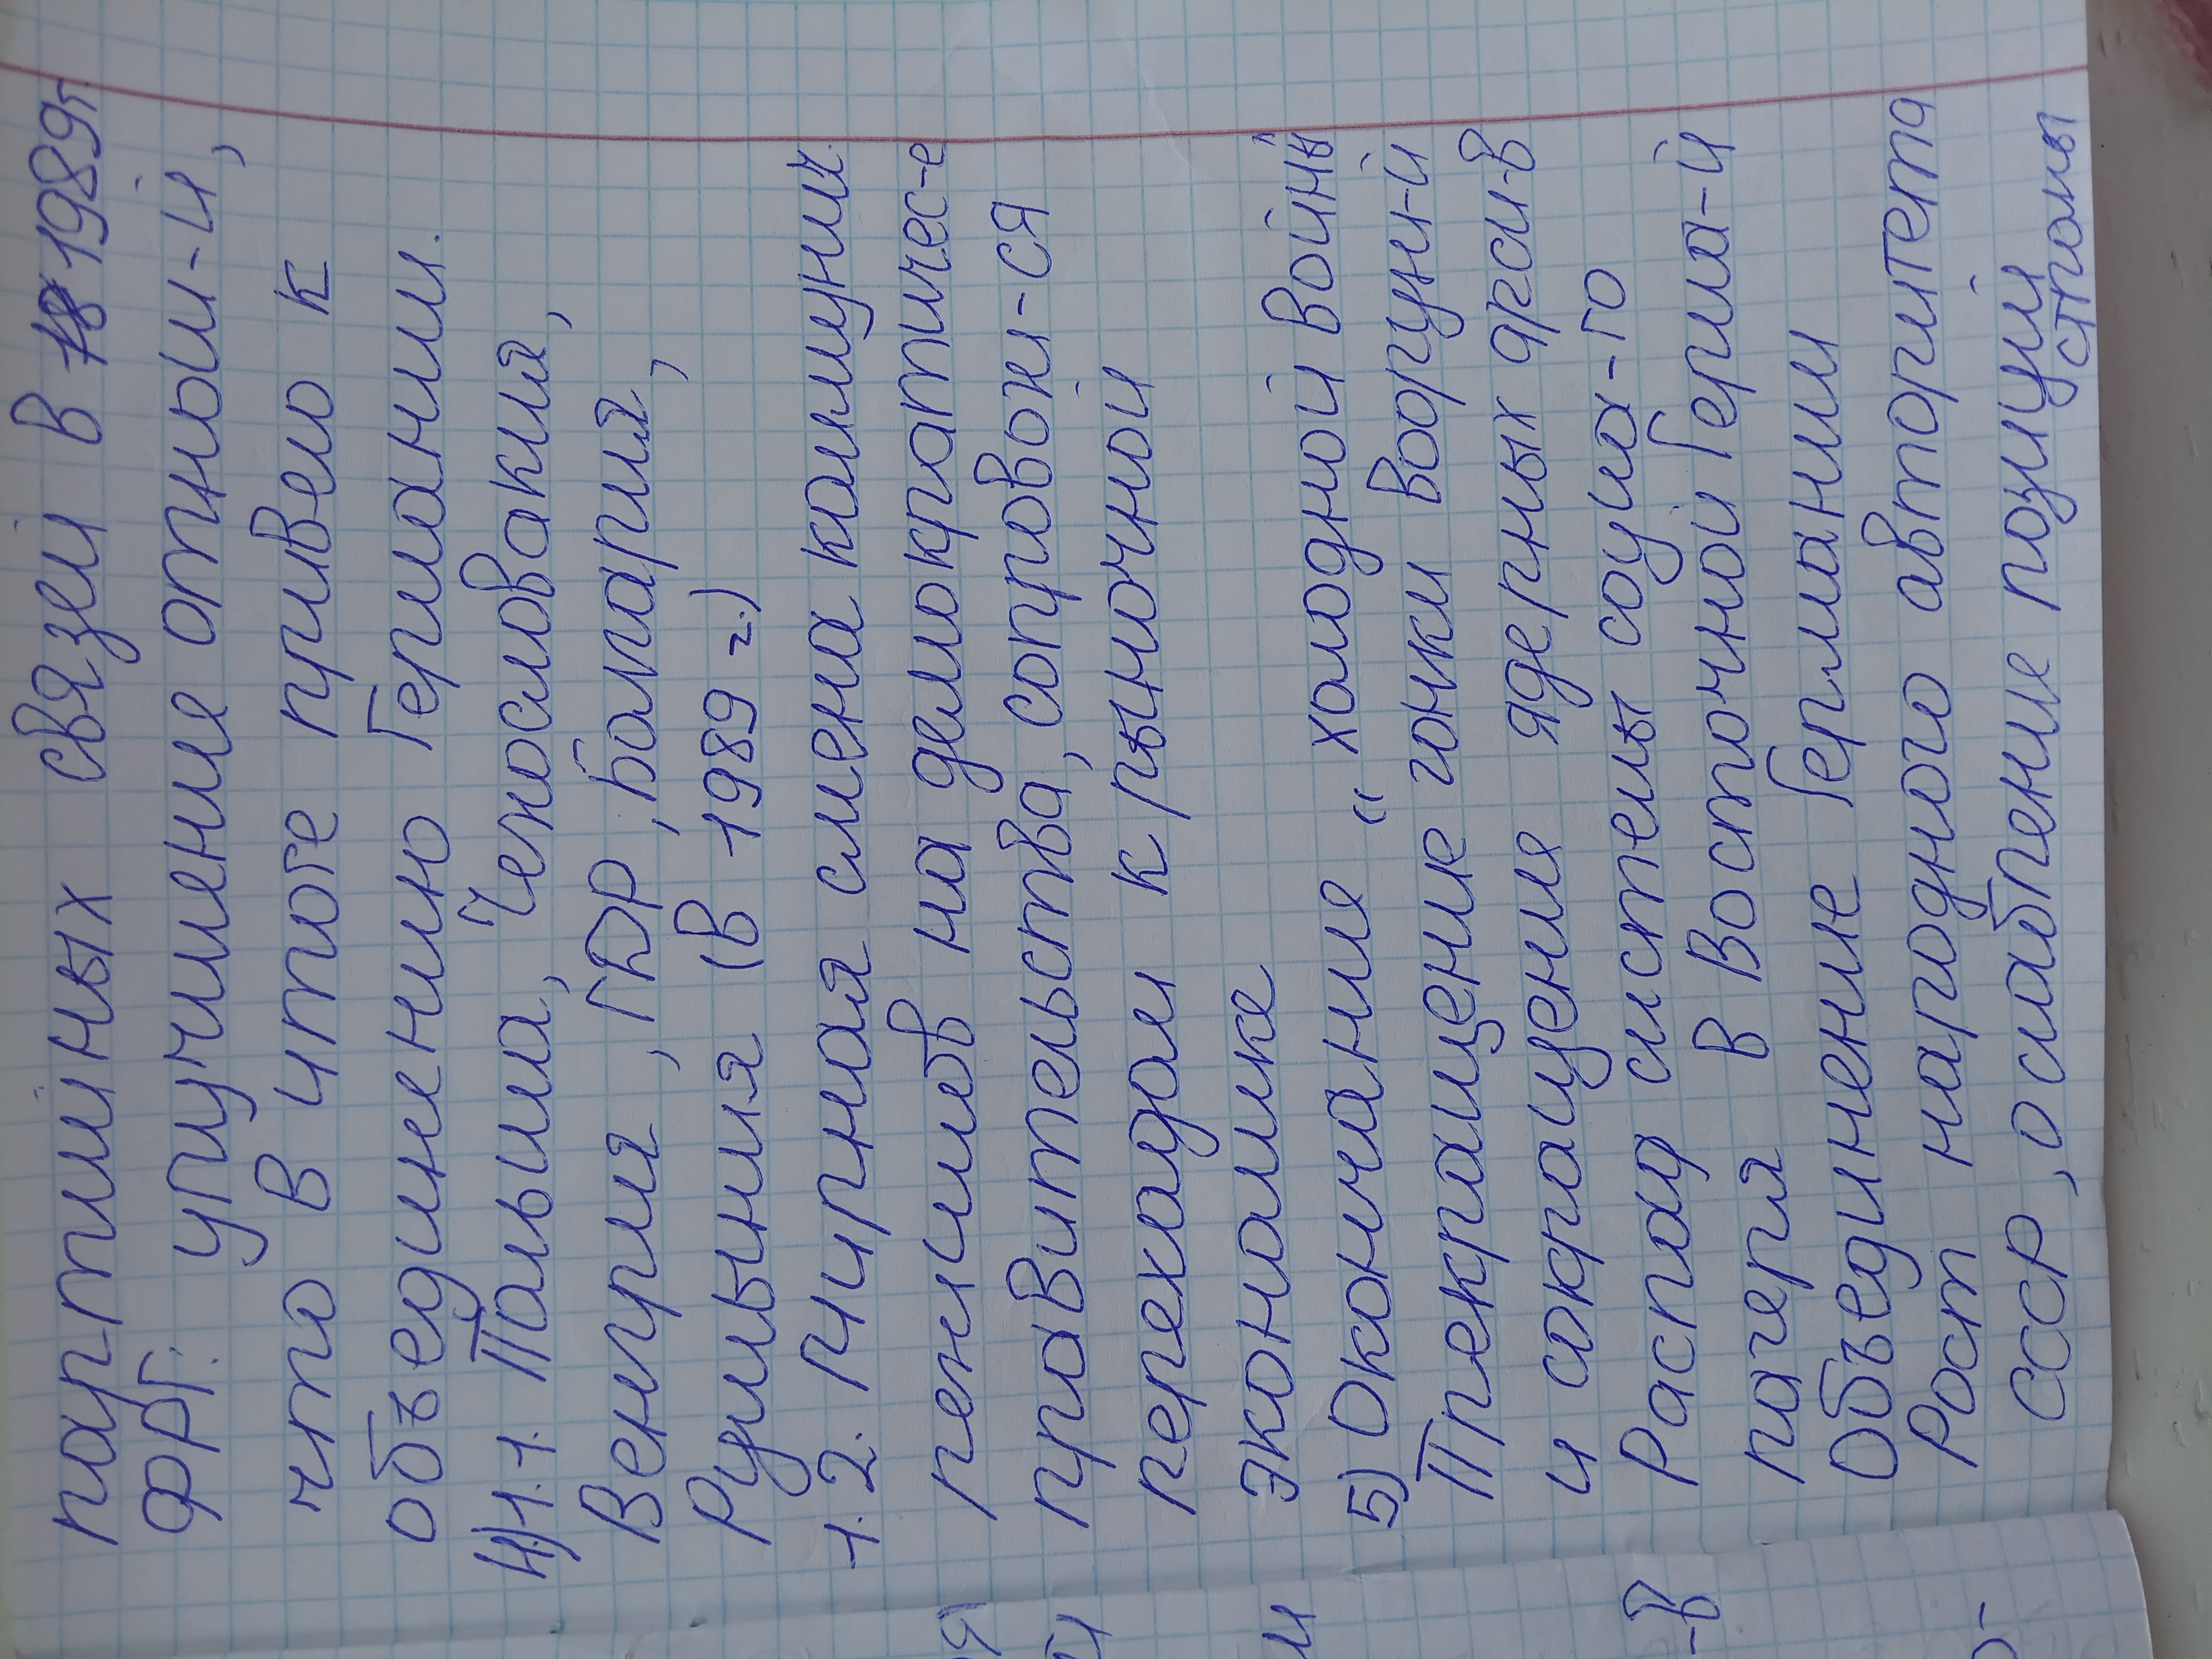 партийных связей в 1989г
ФРГ: улучшение отнош-й,
что в итоге привело к
объединению Германии.
4)1.1. Польша, Чехословакия,
Венгрия, ГДР, Болгария,
Румыния (в 1989 г.)
1.2. Мирная смена коммунич.
режимов на демократичес-е
правительства, сопровож-ся
переходом к рыночной
экономике
5) Окончание "холодной войны"
Прекращение гонки вооруж-й
и сокращения ядерных арсн-в
Распад системы социа-го
лагеря в Восточной Герма-й
Объединение Германии
Рост народного авторитета
СССР, ослабление позиции
страны